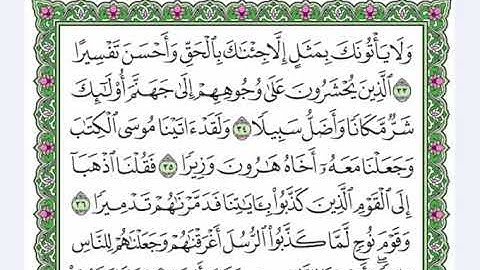 وَلَا يَأْتُونَكَ بِمَثَلٍ إِلَّا جِئْنَاكَ بِالْحَقِّ وَأَحْسَنَ تَفْسِيرًا
٣٣ الَّذِينَ يُحْشَرُونَ عَلَىٰ وُجُوهِهِمْ إِلَىٰ جَهَنَّمَ أُوْلَٰئِكَ
شَرٌّ مَّكَانًا وَأَضَلُّ سَبِيلًا ٣٤ وَلَقَدْ ءَاتَيْنَا مُوسَى الْكِتَٰبَ
وَجَعَلْنَا مَعَهُۥ أَخَاهُ هَٰرُونَ وَزِيرًا ٣٥ فَقُلْنَا اذْهَبَا
إِلَى الْقَوْمِ الَّذِينَ كَذَّبُواْ بِـَٔايَٰتِنَا فَدَمَّرْنَٰهُمْ تَدْمِيرًا ٣٦
وَقَوْمَ نُوحٍ لَّمَّا كَذَّبُواْ الرُّسُلَ أَغْرَقْنَٰهُمْ وَجَعَلْنَٰهُمْ لِلنَّاسِ